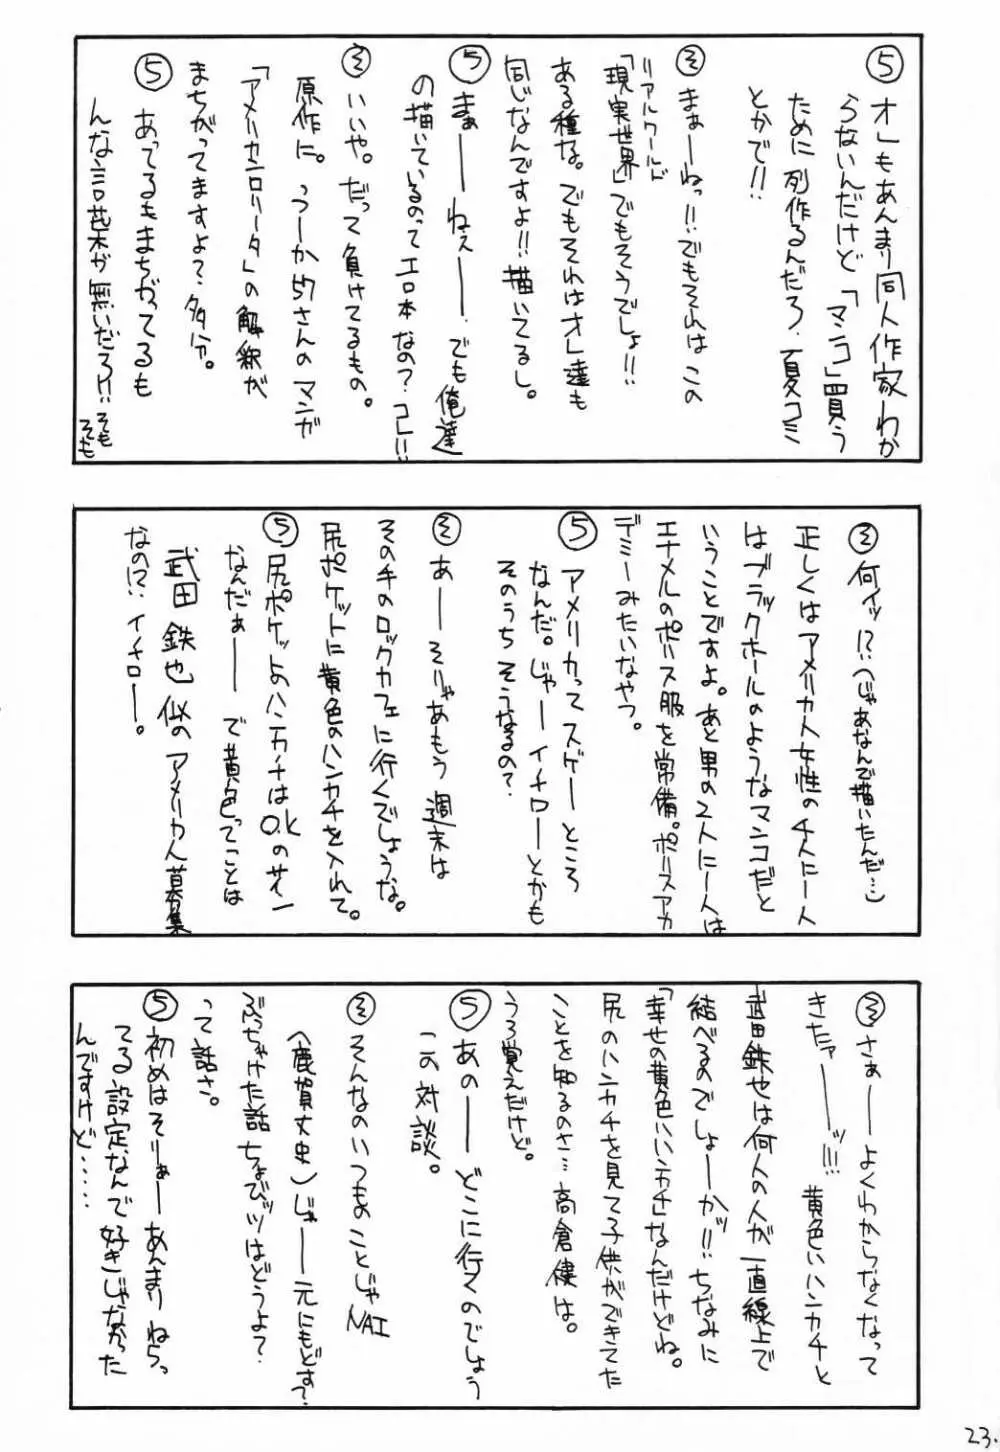 ⑤オレもあんまり同人作家わか
らないんだけど「マンコ」買う
ために列作るんだろ、夏コミ
とかで!!
㋞まぁーねっ!!でもそれはこの
リアルワールド
「現実世界」でもそうでしょ!!
ある種な。でもそれはオレ達も
同じなんですよ!!描いてるし。
⑤まぁーーねぇーー。でも俺達
の描いているのってエロ本なの?コレ!!
㋞いいや。だって負けてるもの。
原作に。うーか57さんのマンガ
「アメリカンロリータ」の解釈が
まちがってますよ?多分。
⑤あってるもまちがってるも
んな言葉が無いだろ!!そも
そも
㋞何ィッ!?(じゃあなんで描いたんだ…)
正しくはアメリカ人女性の千人に一人
はブラックホールのようなマンコだと
いうことですよ。あと男の2人に一人は
エナメルのポリス服を常備。ポリスアカ
デミーみたいなやつ。
⑤アメリカってスゲーところ
なんだ。じゃーイチローとかも
そのうちそうなるの?
㋞あーーそりゃあもう週末は
その手のロックカフェに行くでしょうな。
尻ポケットに黄色のハンカチを入れて。
⑤尻ポケットのハンカチはO.Kのサイン
なんだぁーーで黄色ってことは
武田鉄也似のアメリカ人募集
なの!?イチロー。
㋞さぁーーよくわからなくなって
きたァーーッ!!!黄色いハンカチと
武田鉄也は何人の人が一直線上で
結べるのでしょーかッ!!ちなみに
「幸せの黄色いハンカチ」なんだけどね。
尻のハンカチを見て子供ができてた
ことを知るのさ…高倉健は。
うろ覚えだけど。
⑤あのーーどこに行くのでしょう
この対談。
㋞そんなのいつものことじゃNAI
(鹿賀丈史)じゃーー元にもどす?
ぶっちゃけた話ちょびッツはどうよ?
って話さ。
⑤初めはそりぁーあんまりねらっ
てる設定なんで好きじゃなかった
んですけど……
23.